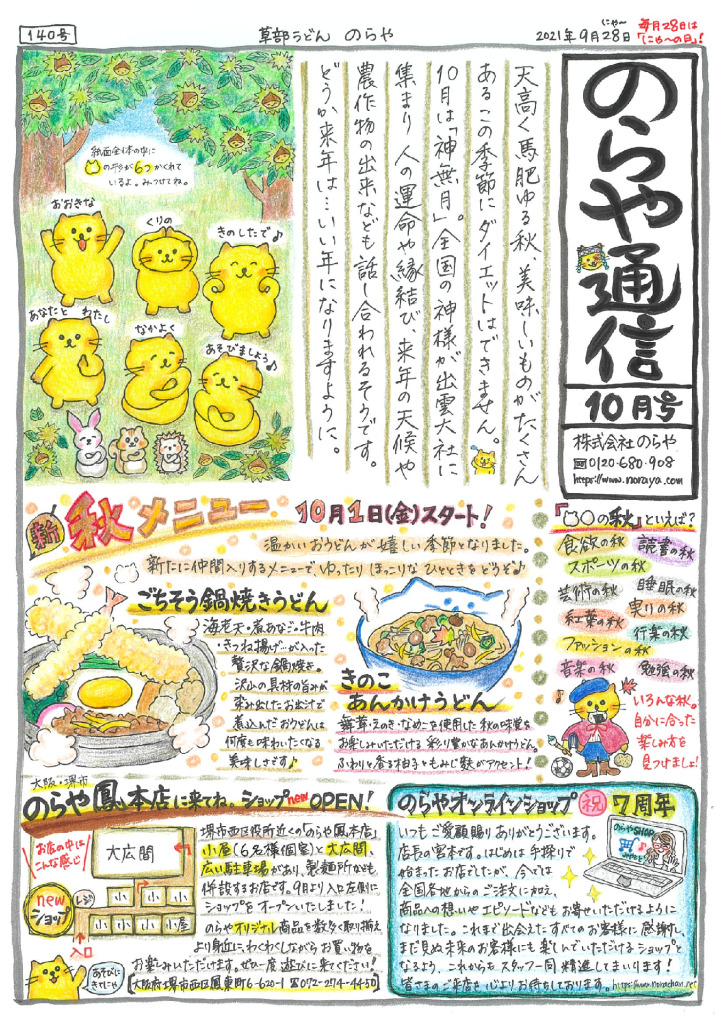 140号
草部うどん のらや
にゃ〜
2021年9月28日
毎月28日は
「にゃ〜の日」!
のらや通信
10月号
株式会社のらや
☎0120-680-908
https://www.noraya.com
天高く馬肥ゆる秋、美味しいものがたくさん
あるこの季節にダイエットはできません。
10月は「神無月」。全国の神様が出雲大社に
集まり 人の運命や縁結び、来年の天候や
農作物の出来なども話し合われるそうです。
どうか来年は…いい年になりますように。
紙面全体の中に
の形が6つかくれて
いるよ。みつけてね。
おおきな
くりの
きのしたで♪
あなたと わたし
なかよく
あそびましょう♪
新 秋メニュー
10月1日(金)スタート!
温かいおうどんが嬉しい季節となりました。
新たに仲間入りするメニューで、ゆったり ほっこりな ひとときをどうぞ♪
ごちそう鍋焼きうどん
海老天・煮あなご・牛肉
・きつね揚げ…が入った
贅沢な鍋焼き。
沢山の具材の旨みが
染み出したお出汁で
煮込んだおうどんは
何度も味わいたくなる
美味しさです♪
きのこ
あんかけうどん
舞茸・えのき・なめこを使用した秋の味覚を
お楽しみいただける 彩り豊かなあんかけうどん。
ふわりと香る柚子ともみじ麩がアクセント!
『の秋』といえば?
食欲の秋
読書の秋
スポーツの秋
芸術の秋
睡眠の秋
紅葉の秋
実りの秋
行楽の秋
ファッションの秋
音楽の秋
勉強の秋
いろんな秋。
自分に合った
楽しみ方を
見つけましょ!
大阪・堺市
のらや鳳本店に来てね。ショップnew OPEN!
お店の中は
こんな感じ
大広間
new
ショップ
レジ
小
小
小
小
小
小
小屋
入口
あそびに
きてにゃ
堺市西区役所近くの「のらや鳳本店」
小屋(6名様個室)と大広間、
広い駐車場があり、製麺所なども
併設するお店です。9月より入口左側に
ショップをオープンいたしました!
のらやオリジナル商品を数多く取り揃え
より身近に、わくわくしながら お買い物を
お楽しみいただけます。ぜひ一度 遊びに来てください!
[大阪府堺市西区鳳東町6-620-1 ☎072-274-4450]
のらやオンラインショップ 祝 7周年
いつもご愛顧賜り ありがとうございます。
店長の宮本です。はじめは手探りで
始まったお店でしたが、今では
全国各地からのご注文に加え、
商品への想いやエピソードなども お寄せいただけるように
なりました。これまで出会えたすべてのお客様に感謝し、
まだ見ぬ未来のお客様にも楽しんでいただけるショップと
なるよう、これからもスタッフ一同 精進してまいります!
皆さまのご来店を心よりお待ちしております。https://www.norachan.net
のらやSHOP